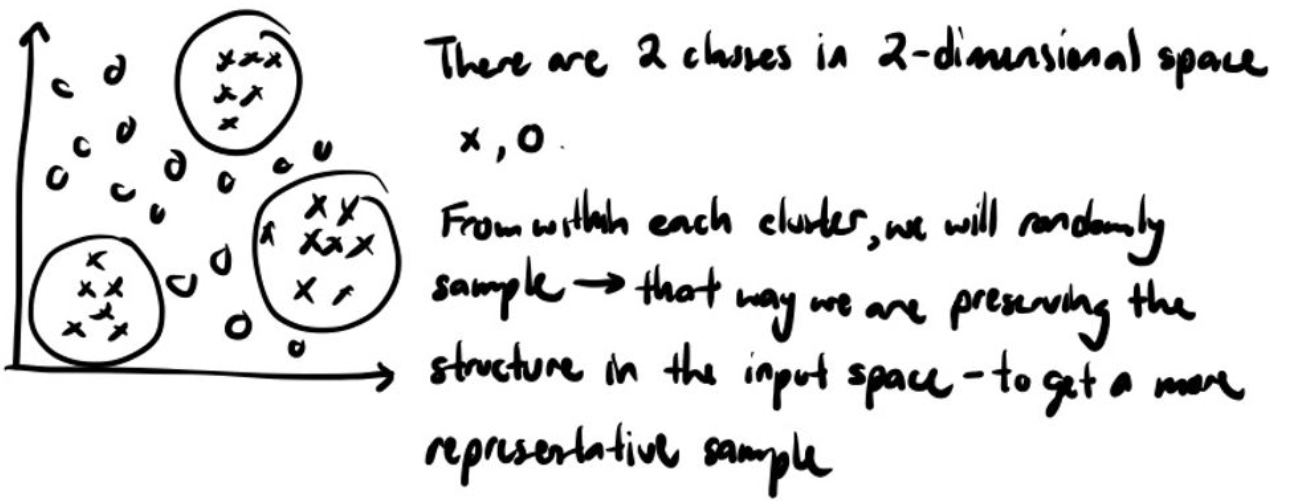 There are 2 classes in 2-dimensional space
x, o.
From within each cluster, we will randomly
sample → that way we are preserving the
structure in the input space - to get a more
representative sample